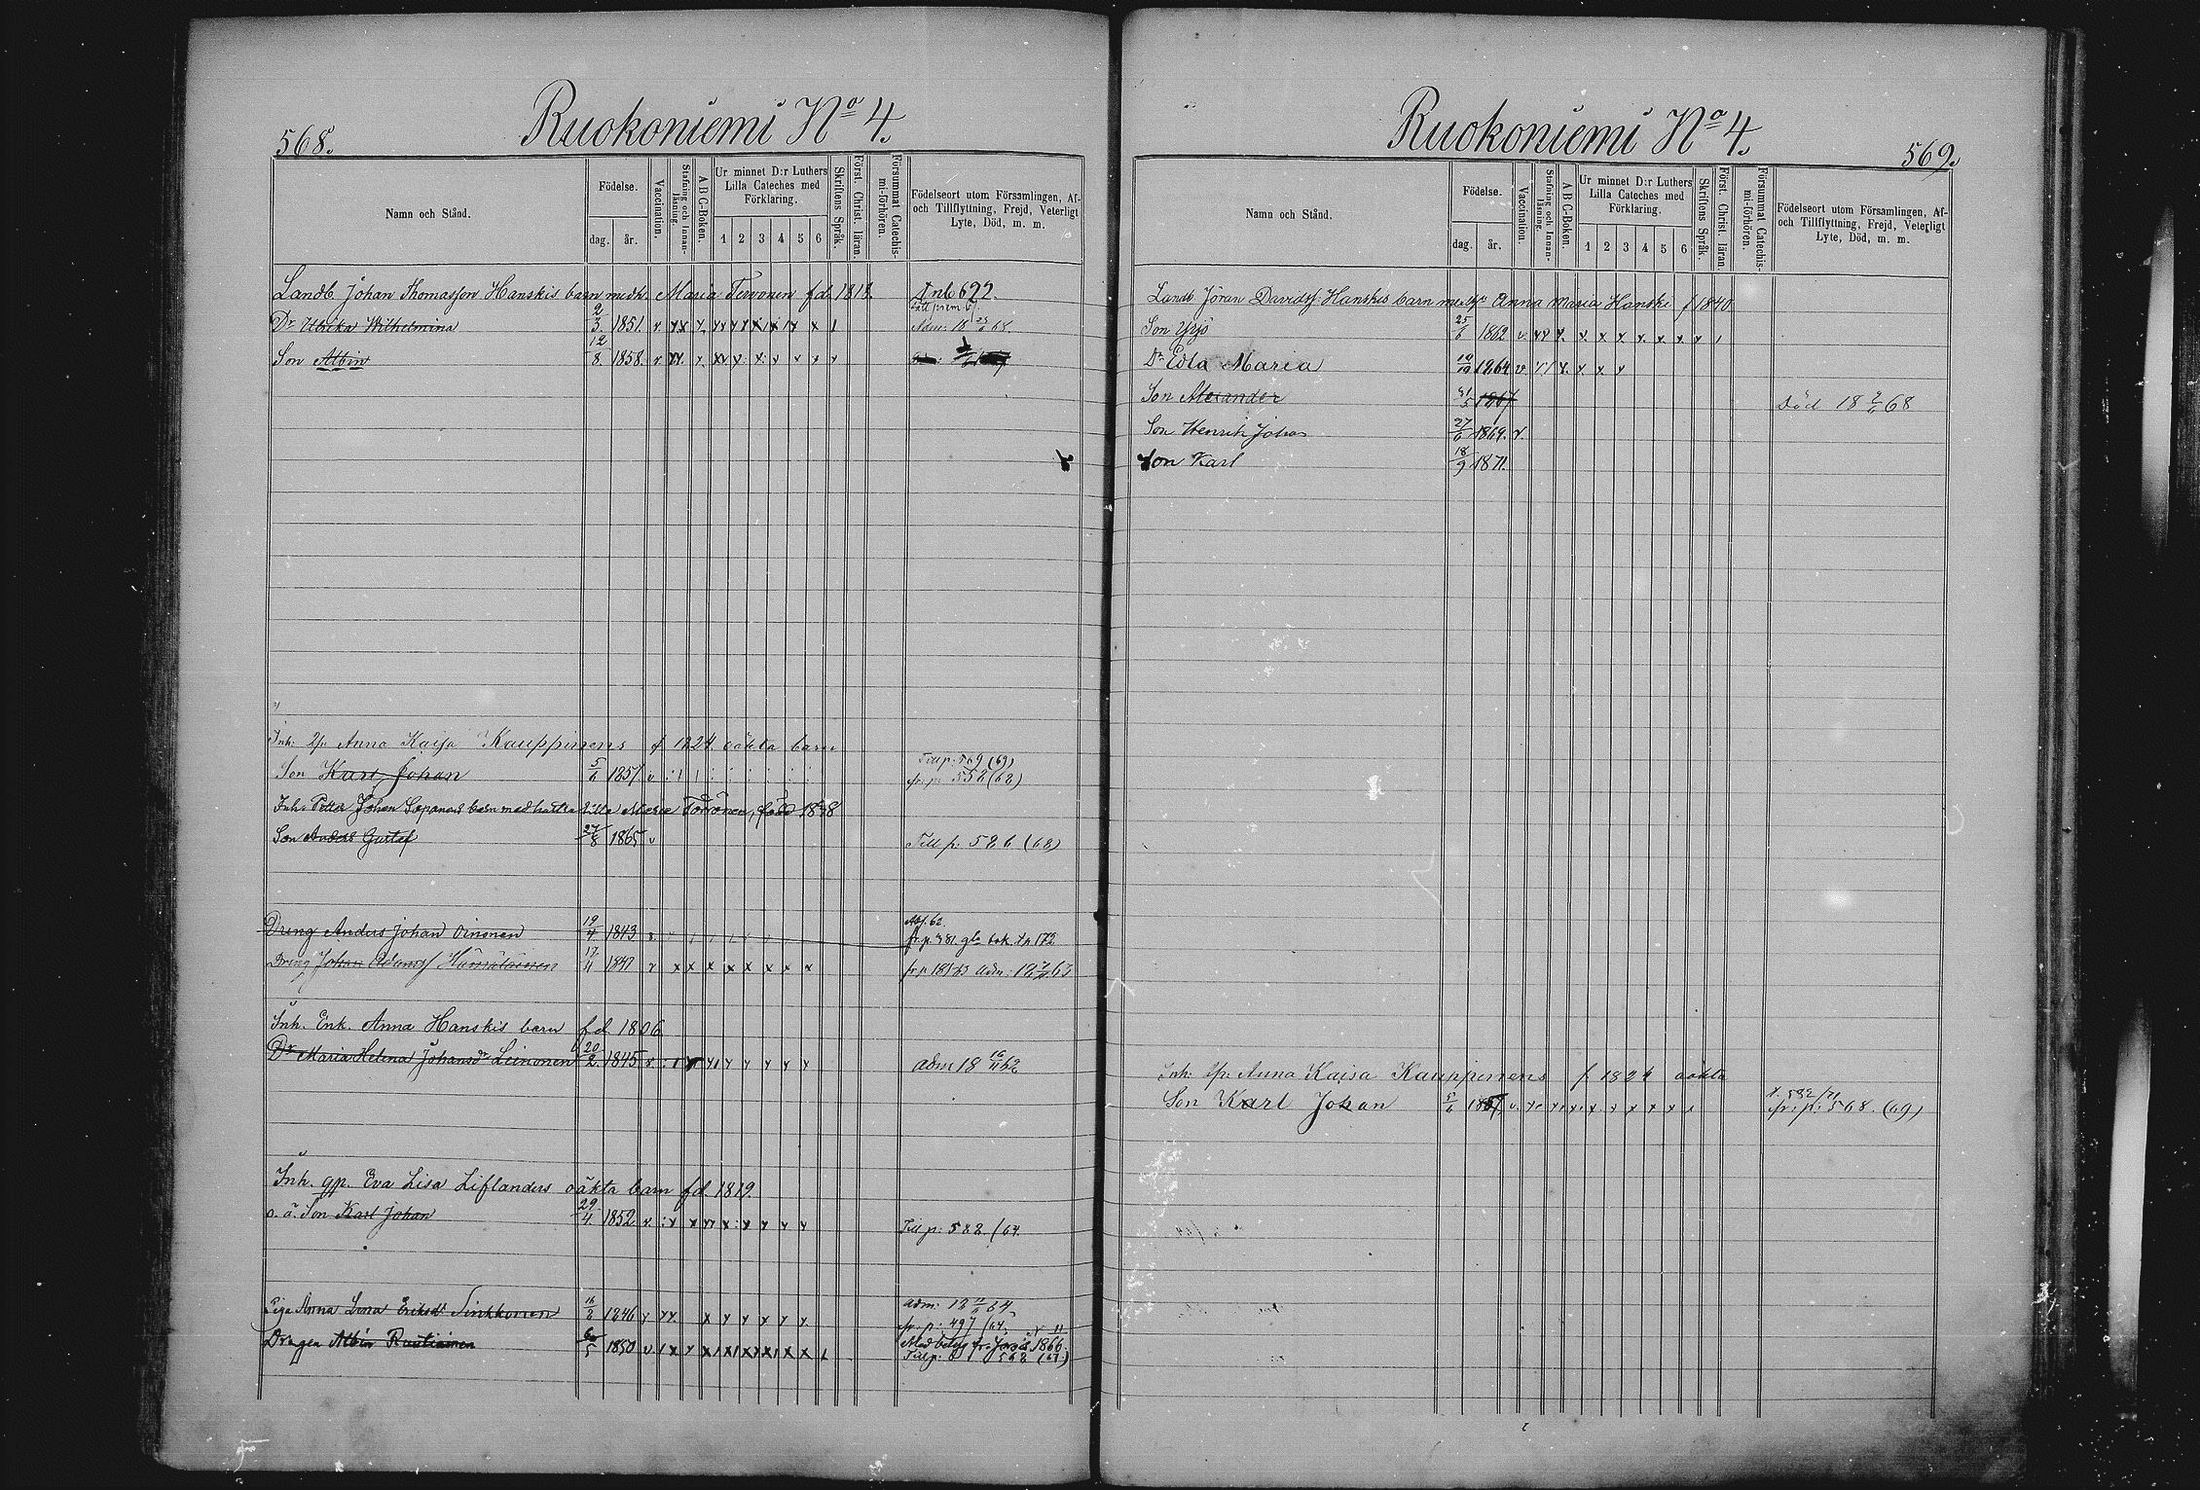 568.
Ruokoniemi No 4.
Namn och Stånd.
Födelse.
dag. år.
Vaccination.
Stafning och Innan-läsning.
A B C-Boken.
Ur minnet D:r Luthers
Lilla Cateches med
Förklaring.
1 2 3 4 5 6
Skriftens Språk.
Först. Christ. läran.
Försummat Catechis-mi-förhören.
Födelseort utom Församlingen, Af-
och Tillflyttning, Frejd, Veterligt
Lyte, Död, m. m.
Landb. Johan Thomasson Hanskis barn med h. Maria Tervonen fd. 1818.
Dr Ulrika Wilhelmina 2/3. 1851.
Son Albin 12/8 1858.
Inh. Anna Kaisa Kauppinens f 1824 oäkta barn
Son Karl Johan 5/6 1857 v
Till p. 569 (69)
fr. p. 558 (68)
Inh. Petter Johan barn med hustru Ulla Maria Torvonen, född 1848
Son Anders Gustaf 27/8 1865 v Till p. 526 (68)
Dreng Anders Johan Oinonen 19/4 1843
Dreng Johan Adamsf 17/4 1847 v x x x x x x x x
Inh. Enk. Anna Hanskis barn fd. 1806
Dr Maria Helena Johansdr Leinonen 20/2. 1845 adm 18 16/11 62
Inh. gp. Eva Lisa Liflanders oäkta barn fd. 1819.
o. ä. Son Karl Johan 29/4 1852 Till p: 588. (64.
Piga Anna Lena Eriksdr Sinkkonen 16/8 1846 adm:
fr. p: 497 (64.
Drengen Albin Rautiainen 6/5 1850 Med betyg fr. 1866.
Till p. 568 (67.)
Ruokoniemi No 4.
569.
Namn och Stånd.
Födelse.
dag. år.
Vaccination.
Stafning och Innan-läsning.
A B C-Boken.
Ur minnet D:r Luthers
Lilla Cateches med
Förklaring.
1 2 3 4 5 6
Skriftens Språk.
Först. Christ. läran.
Försummat Catechis-mi-förhören.
Födelseort utom Församlingen, Af-
och Tillflyttning, Frejd, Veterligt
Lyte, Död, m. m.
Landb. Jöran Davidsf. Hanskis barn med h. Anna Maria Hanski f 1840
Son Yrjö 25/6 1862
Dr Edla Maria 1864
Son Alexander 31/5 1867 Död 18 68
Son Henrik Johan 27/6 1869. v.
Son Karl 18/9 1871.
Inh. Anna Kaisa Kauppinens f 1824 oäkta
Son Karl Johan 5/6 1857
fr: p: 568. (69)